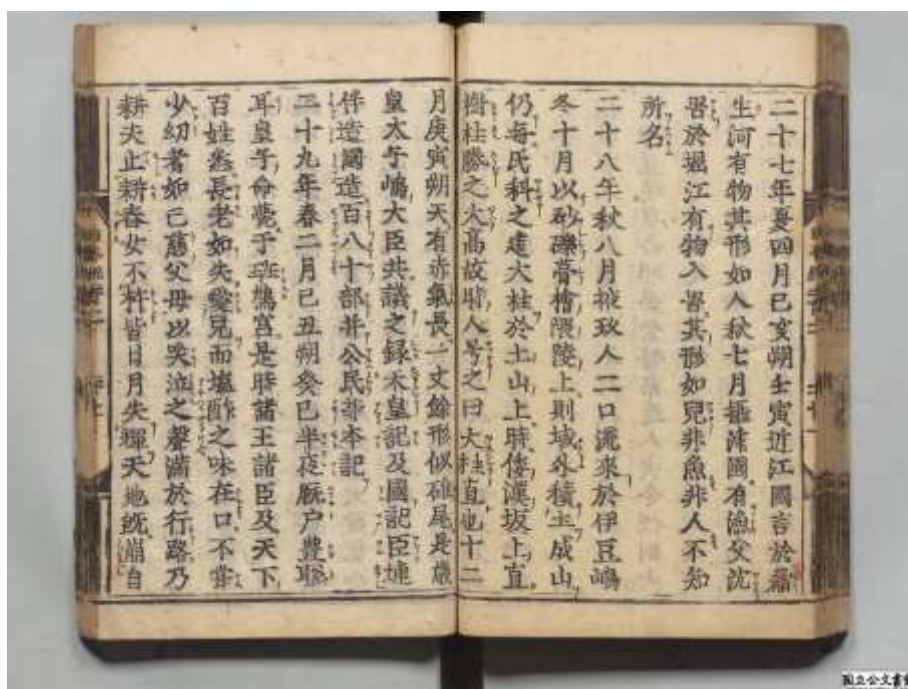 二十七年夏四月己亥朔壬寅近江國言於蒲
生河有物其形如人秋七月攝津國有漁父沈
罟於堀江有物入罟其形如兒非魚非人不知
所名
二十八年秋八月掖玖人二口流來於伊豆嶋
冬十月以砂礫葺檜隈陵上則域外積土成山
仍每氏科之建大柱於土山上時倭漢坂上直
樹柱勝之大高故時人号之曰大柱直也十二
月庚寅朔天有赤氣長一丈餘形似雉尾是歲
皇太子嶋大臣共議之錄天皇記及國記臣連
伴造國造百八十部并公民等本記
二十九年春二月己丑朔癸巳半夜厩戶豊聰
耳皇子命薨于斑鳩宮是時諸王諸臣及天下
百姓悉長老如失愛兒而塩酢之味在口不嘗
少幼者如亡慈父母以哭泣之聲滿於行路乃
耕夫止耕舂女不杵皆曰月失輝天地既崩自
國立公文書館